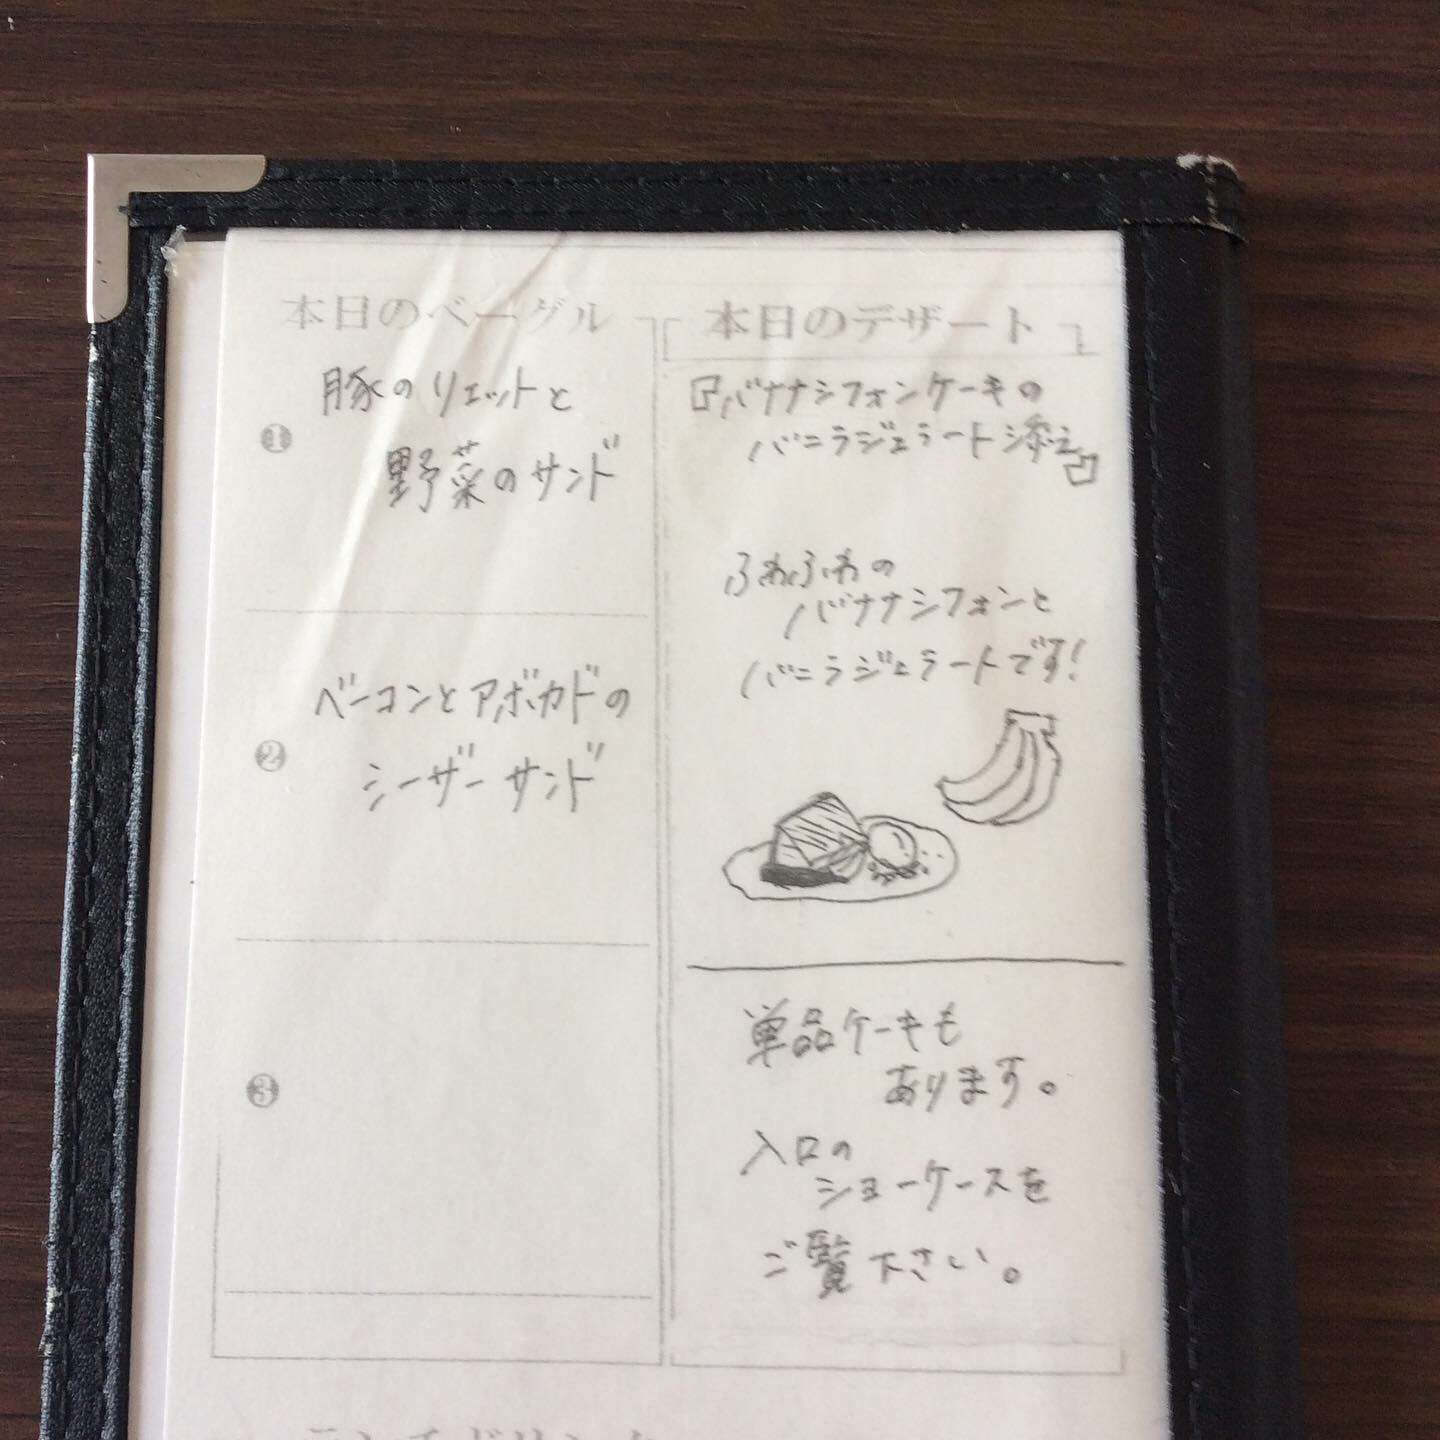 本日のベーグル
❶
豚のリエットと
野菜のサンド
❷
ベーコンとアボカドの
シーザーサンド
❸
本日のデザート
『バナナシフォンケーキの
バニラジェラート添え』
ふわふわの
バナナシフォンと
バニラジェラートです!
単品ケーキも
あります。
入口の
ショーケースを
ご覧下さい。
ランチドリンク